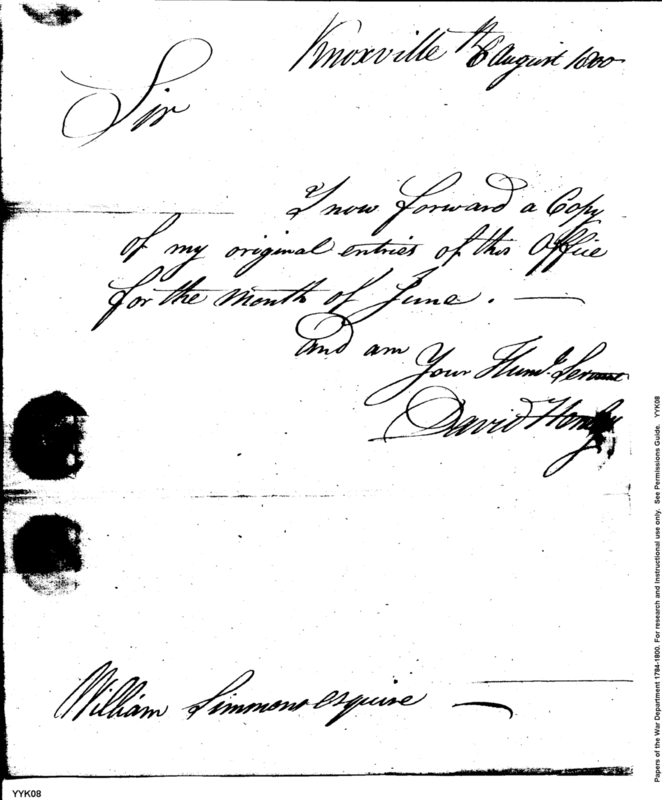 Knoxville 8th August 1800
Sir
I now forward a Copy
of my original entries of this Office
for the Month of June. —
and am
Your Humb. Servant
David Henley
William Simmons esquire —
YYK08
Papers of the War Department 1784-1800. For research and Instructional use only. See Permissions Guide. YYK08